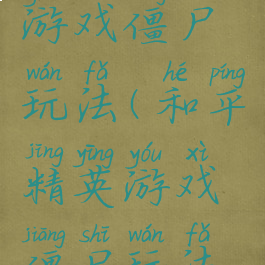 游戏僵尸
wán fǎ hé píng
玩法(和平
jīng yīng yóu xì
精英游戏
jiāng shī wán fǎ
僵尸玩法